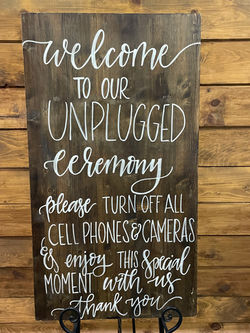 welcome
TO OUR
UNPLUGGED
ceremony
please TURN OFF ALL
CELL PHONES & CAMERAS
& enjoy THIS Special
MOMENT with us
thank you